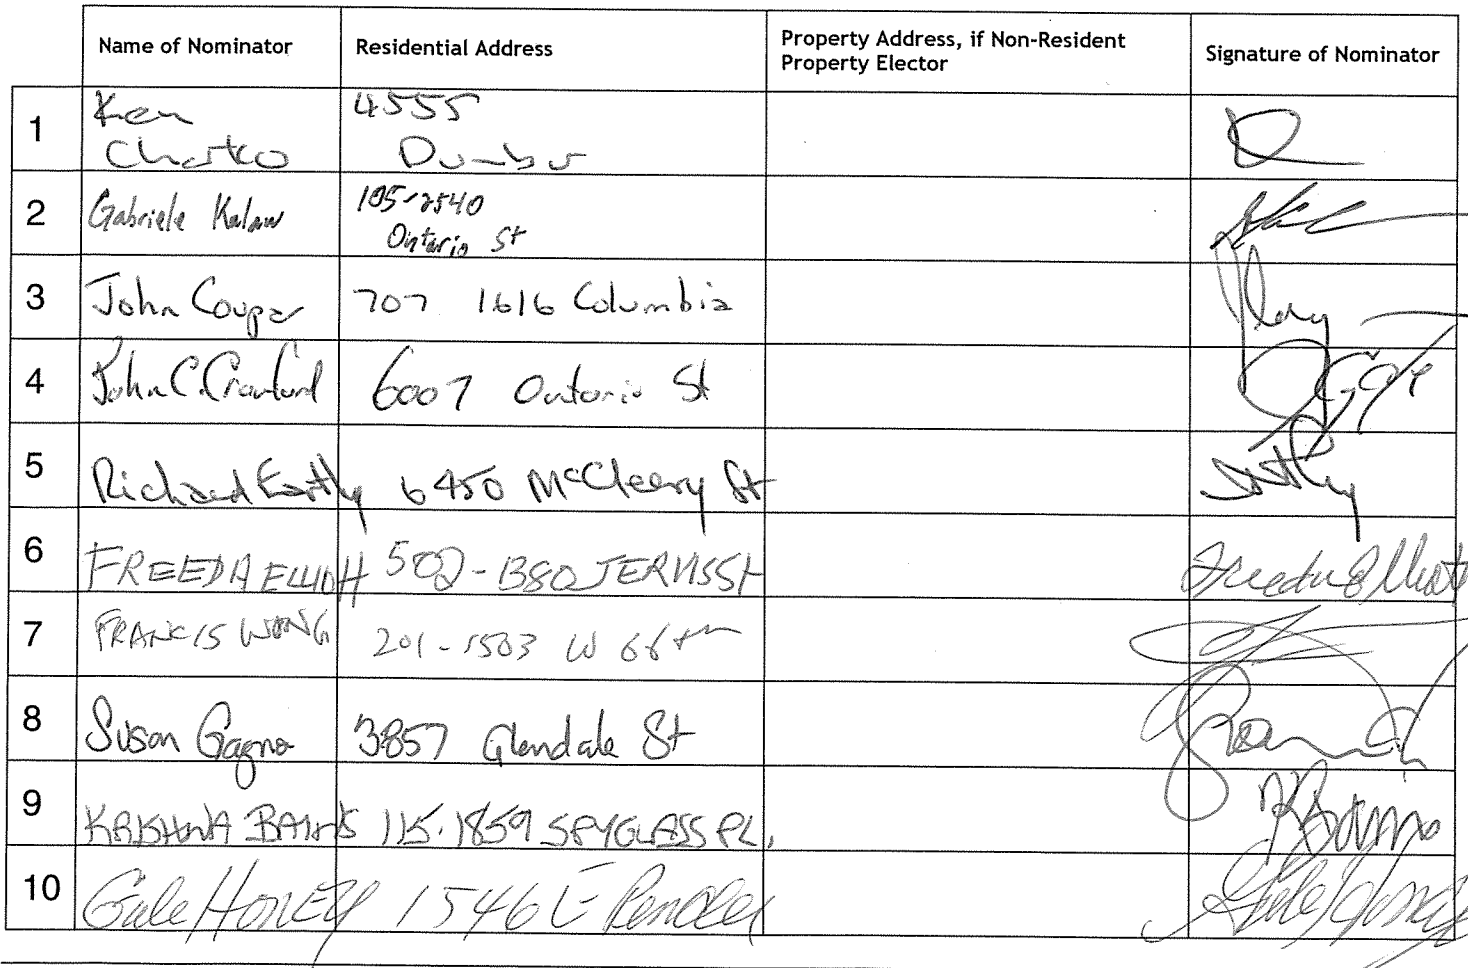 Name of Nominator Residential Address Property Address, if Non-Resident Property Elector Signature of Nominator
1 Ken Charko 4555 Dunbar
2 Gabriele Kalaw 105-2540 Ontario St
3 John Coupar 707 1616 Columbia
4 John C. Crawford 6007 Ontario St
5 Richard 6450 McCleery St
6 FREEDA ELLIOTT 502-1380 JERVIS St Freeda Elliott
7 FRANCIS WONG 201-1503 W 66th
8 Susan Gagne 3857 Glendale St
9 KRISHNA BAINS 115-1859 SPYGLASS PL. KBains
10 Gale HONEY 1546 E Pender Gale Honey